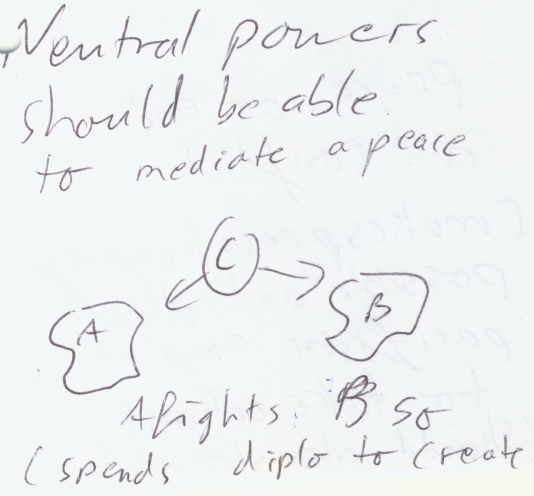 Neutral powers
should be able
to mediate a peace
C
A
B
A fights B so
C spends diplo to create